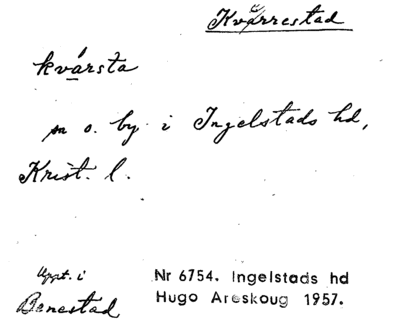 Kvärrestad
kvársta
sn o. by i Ingelstads hd,
Krist. l.
Uppt. i
Benestad
Nr 6754. Ingelstads hd
Hugo Areskoug 1957.